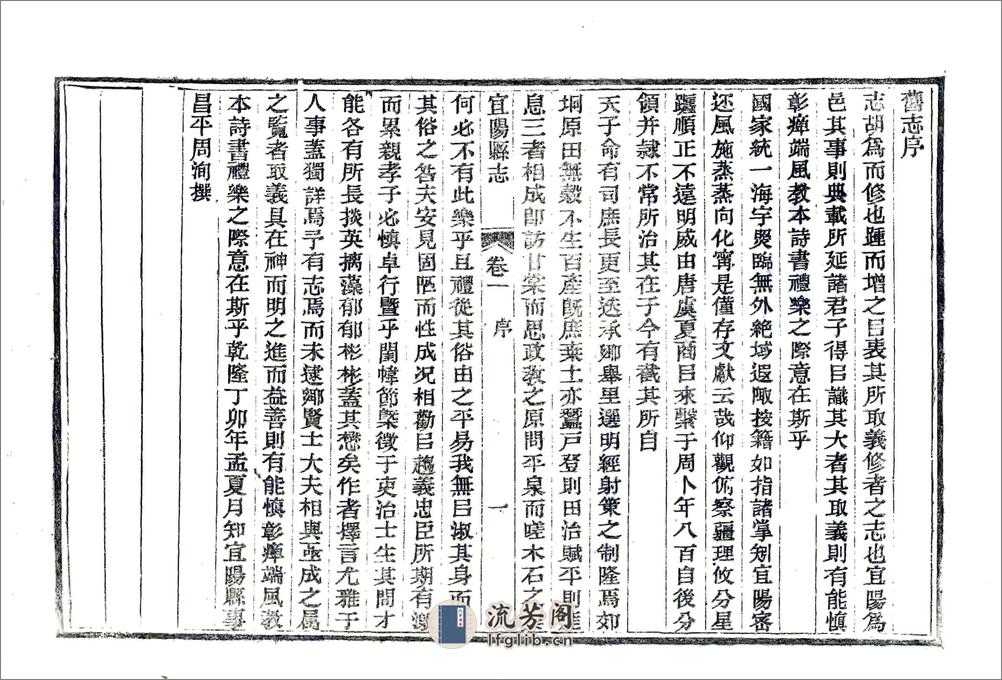 舊志序
志胡為而修也踵而增之㠯表其所取義修者之志也宜陽為
邑其事則典載所延諸君子得㠯識其大者其取義則有能慎
彰癉端風教本詩書禮樂之際意在斯乎
國家統一海宇熨臨無外絶域遐陬按籍如指諸掌矧宜陽密
迩風施蒸蒸向化寧是僅存文獻云哉仰觀俯察疆理攸分星
躔順正不遠明威由唐虞夏商㠯來繫于周卜年八百自後分
領并隷不常所治其在于今有截其所自
天子命有司庶長更至迭承鄉舉里選明經射策之制隆焉如
坰原田無穀不生百產旣庶桒土亦蠶戸登則田治賦平則
息三者相成即訪甘棠而思政教之原問平泉而嗟木石之
宜陽縣志
卷一
序
一
何必不有此樂乎且禮從其俗由之平易我無㠯淑其身而
其俗之咎夫安見固陋而性成况相勸㠯趨義忠臣所期有激
而累親孝子必慎卓行暨乎閨幃節槩徵于吏治士生其間才
能各有所長掞英摛藻郁郁彬彬蓋其懋矣作者擇言尤雅于
人事蓋獨詳焉予有志焉而未逮鄉賢士大夫相與亟成之屬
之覽者取義具在神而明之進而益善則有能慎彰癉端風教
本詩書禮樂之際意在斯乎乾隆丁卯年孟夏月知宜陽縣事
昌平周洵撰
流芳阁
lfglib.cn